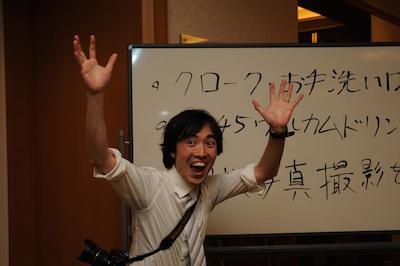 ○クローク、お手洗い
45 ウェルカムドリン
真撮影を